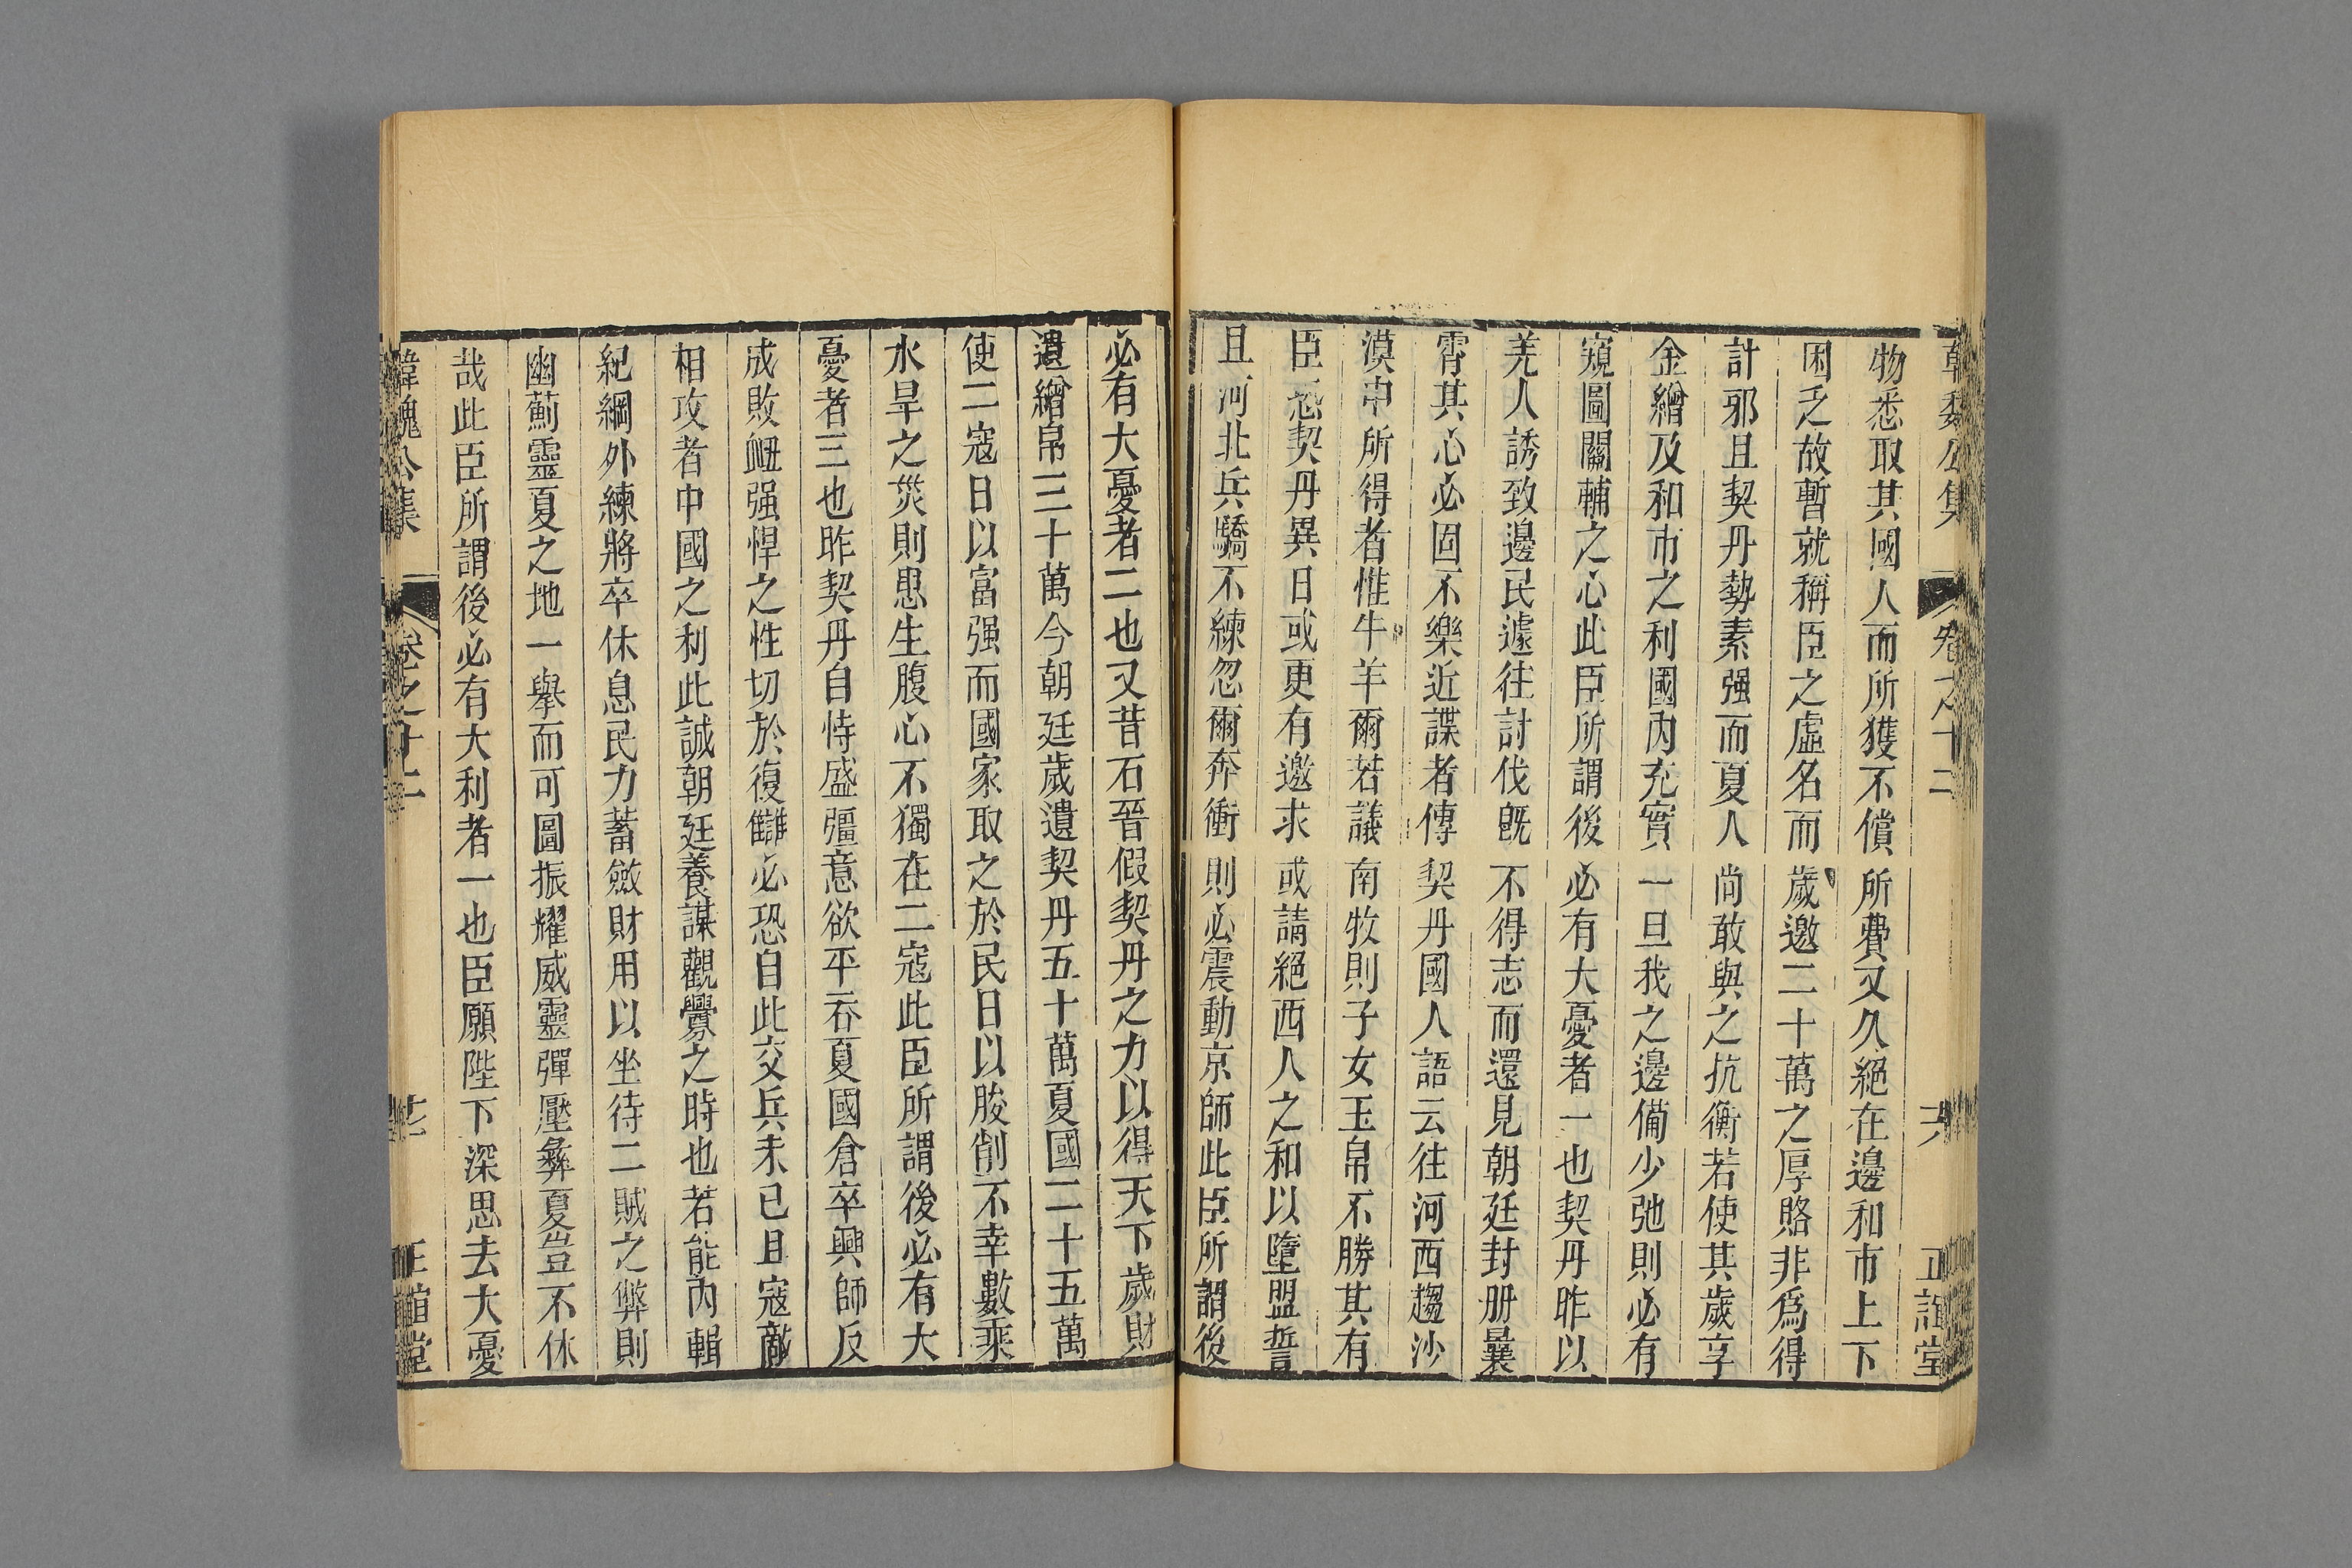 韓魏公集 卷之十二 六 正誼堂
物悉取其國人而所獲不償所費又久絕在邊和市上下
困乏故暫就稱臣之虛名而歲邀二十萬之厚賂非爲得
計邪且契丹勢素强而夏人尙敢與之抗衡若使其歲享
金繒及和市之利國內充實一旦我之邊備少弛則必有
窺圖關輔之心此臣所謂後必有大憂者一也契丹昨以
羌人誘致邊民遽往討伐旣不得志而還見朝廷封册曩
霄其心必固不樂近諜者傳契丹國人語云往河西趨沙
漠中所得者惟牛羊爾若議南牧則子女玉帛不勝其有
臣恐契丹異日或更有邀求或請絕西人之和以墮盟誓
且河北兵驕不練忽爾奔衝則必震動京師此臣所謂後
必有大憂者二也又昔石晉假契丹之力以得天下歲財
遺繒帛三十萬今朝廷歲遺契丹五十萬夏國二十五萬
使二寇日以富强而國家取之於民日以朘削不幸數乘
水旱之災則患生腹心不獨在二寇此臣所謂後必有大
憂者三也昨契丹自恃盛彊意欲平吞夏國倉卒興師反
成敗衂强悍之性切於復讎必恐自此交兵未已且寇敵
相攻者中國之利此誠朝廷養謀觀釁之時也若能內輯
紀綱外練將卒休息民力蓄斂財用以坐待二賊之弊則
幽薊靈夏之地一舉而可圖振耀威靈彈壓彝夏豈不休
哉此臣所謂後必有大利者一也臣願陛下深思去大憂
韓魏公集 卷之十二 正誼堂